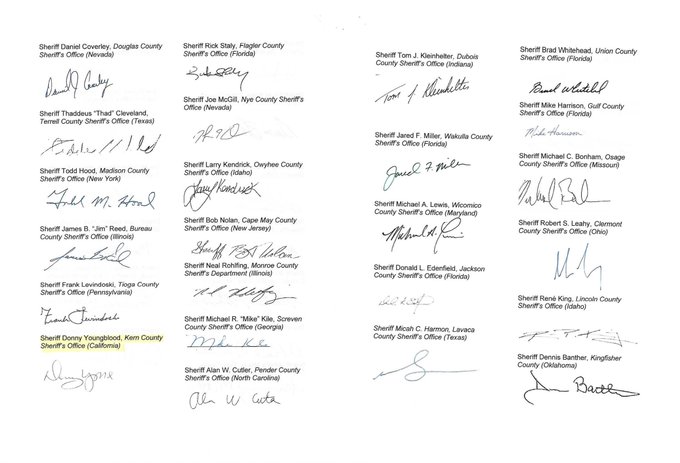 Sheriff Daniel Coverley, Douglas County
Sheriff's Office (Nevada)
Sheriff Thaddeus "Thad" Cleveland,
Terrell County Sheriff's Office (Texas)
Sheriff Todd Hood, Madison County
Sheriff's Office (New York)
Todd M. Hood
Sheriff James B. "Jim" Reed, Bureau
County Sheriff's Office (Illinois)
Sheriff Frank Levindoski, Tioga County
Sheriff's Office (Pennsylvania)
Frank Levindoski
Sheriff Donny Youngblood, Kern County
Sheriff's Office (California)
Sheriff Rick Staly, Flagler County
Sheriff's Office (Florida)
Sheriff Joe McGill, Nye County Sheriff's
Office (Nevada)
Sheriff Larry Kendrick, Owyhee County
Sheriff's Office (Idaho)
Larry Kendrick
Sheriff Bob Nolan, Cape May County
Sheriff's Office (New Jersey)
Sheriff Bob Nolan
Sheriff Neal Rohlfing, Monroe County
Sheriff's Department (Illinois)
Sheriff Michael R. "Mike" Kile, Screven
County Sheriff's Office (Georgia)
Mike Kile
Sheriff Alan W. Cutler, Pender County
Sheriff's Office (North Carolina)
Sheriff Tom J. Kleinhelter, Dubois
County Sheriff's Office (Indiana)
Tom J Kleinhelter
Sheriff Jared F. Miller, Wakulla County
Sheriff's Office (Florida)
Jared F. Miller
Sheriff Michael A. Lewis, Wicomico
County Sheriff's Office (Maryland)
Sheriff Donald L. Edenfield, Jackson
County Sheriff's Office (Florida)
Sheriff Micah C. Harmon, Lavaca
County Sheriff's Office (Texas)
Sheriff Brad Whitehead, Union County
Sheriff's Office (Florida)
Brad Whitehead
Sheriff Mike Harrison, Gulf County
Sheriff's Office (Florida)
Mike Harrison
Sheriff Michael C. Bonham, Osage
County Sheriff's Office (Missouri)
Sheriff Robert S. Leahy, Clermont
County Sheriff's Office (Ohio)
Sheriff René King, Lincoln County
Sheriff's Office (Idaho)
Sheriff Dennis Banther, Kingfisher
County (Oklahoma)